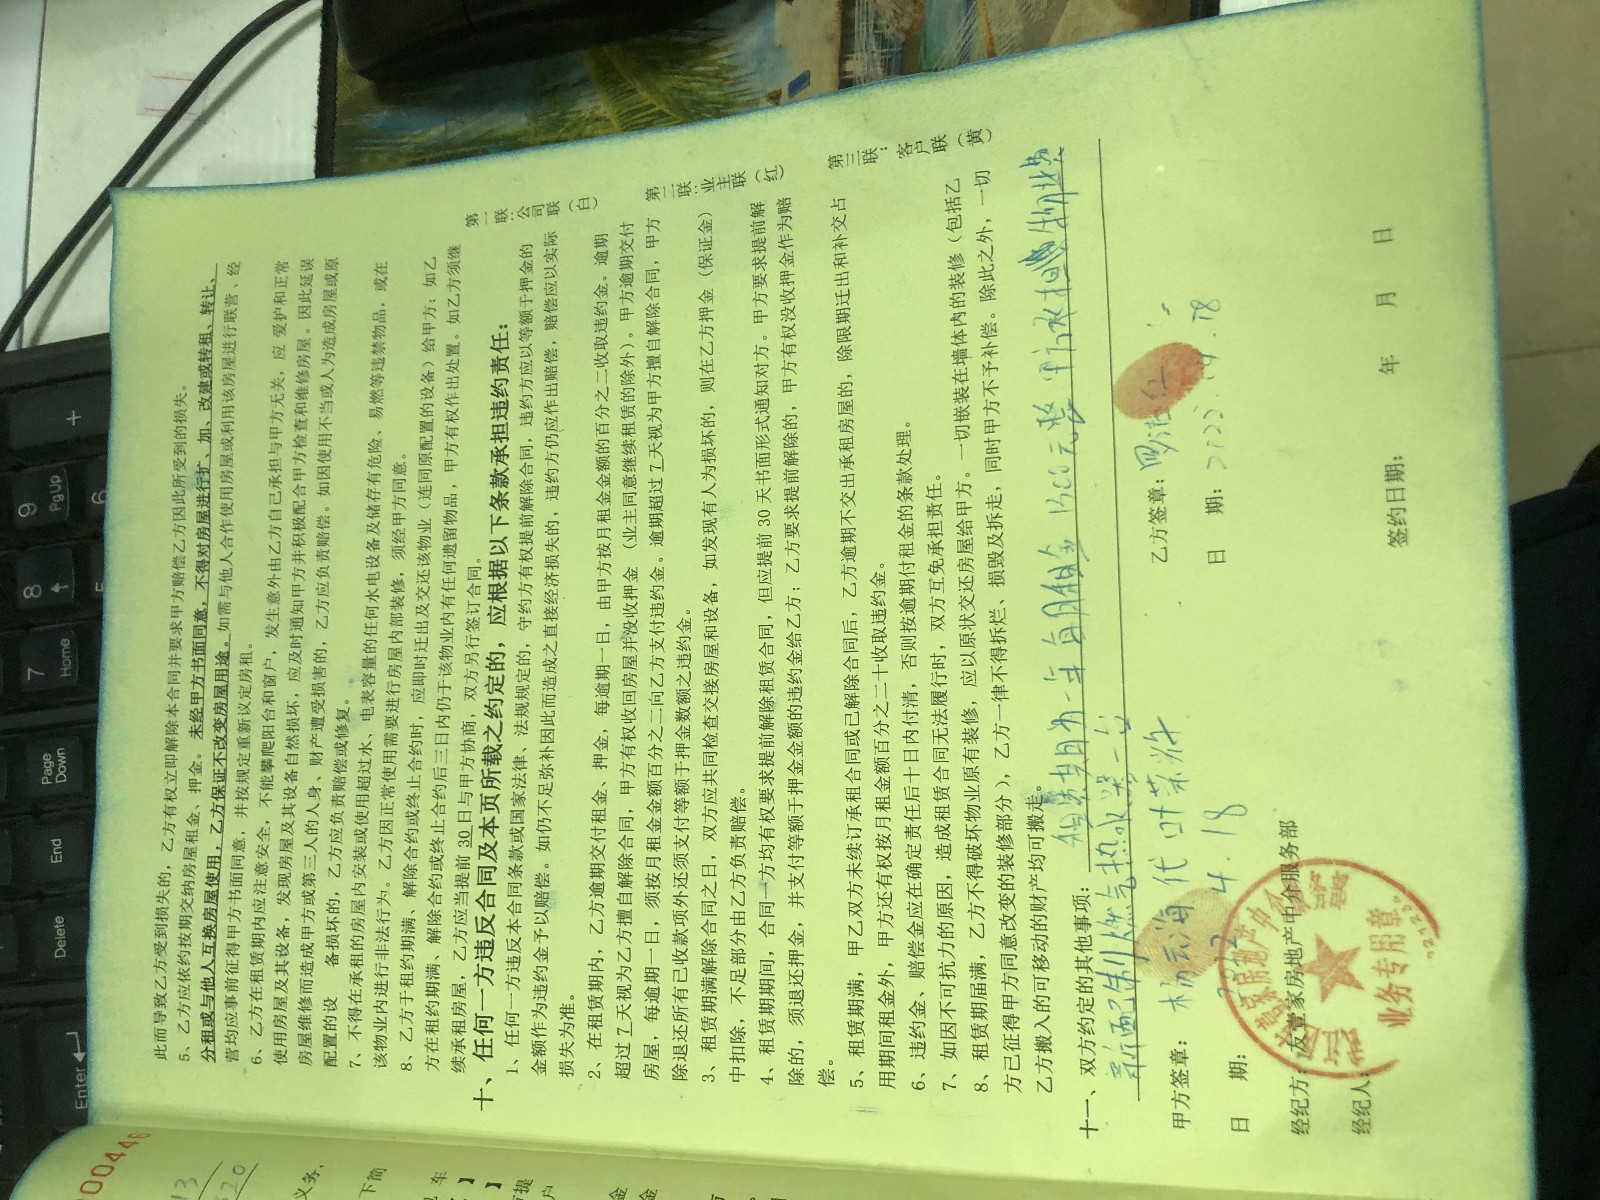 此而导致乙方受到损失的，乙方有权立即解除本合同并要求甲方赔偿乙方因此所受到的损失。
5、乙方应依约按期交纳房屋租金、押金。未经甲方书面同意，不得对房屋进行扩、加、改建或转租、转让、
分租或与他人互换房屋使用，乙方保证不改变房屋用途。如需与他人合作使用房屋或利用该房屋进行联营、经
营均应事前征得甲方书面同意，并按规定重新议定房租。
6、乙方在租赁期内应注意安全，不能攀爬阳台和窗户，发生意外由乙方自己承担与甲方无关，应 爱护和正常
使用房屋及其设备，发现房屋及其设备自然损坏，应及时通知甲方并积极配合甲方检查和维修房屋。因此延误
房屋维修而造成甲方或第三人的人身、财产遭受损害的，乙方应负责赔偿。如因使用不当或人为造成房屋或原
配置的设 备损坏的，乙方应负责赔偿或修复。
7、不得在承租的房屋内安装或使用超过水、电表容量的任何水电设备及储存有危险、易燃等违禁物品，或在
该物业内进行非法行为。乙方因正常使用需要进行房屋内部装修，须经甲方同意。
8、乙方于租约期满、解除合约或终止合约时，应即时迁出及交还该物业（连同原配置的设备）给甲方；如乙
方在租约期满、解除合约或终止合约后三日内仍于该物业内有任何遗留物品，甲方有权作出处置。如乙方须继
续承租房屋，乙方应当提前 30 日与甲方协商，双方另行签订合同。
十、任何一方违反合同及本页所载之约定的，应根据以下条款承担违约责任：
1、任何一方违反本合同条款或国家法律、法规规定的，守约方有权提前解除合同，违约方应以等额于押金的
金额作为违约金予以赔偿。如仍不足弥补因此而造成之直接经济损失的，违约方仍应作出赔偿，赔偿应以实际
损失为准。
2、在租赁期内，乙方逾期交付租金、押金，每逾期一日，由甲方按月租金金额的百分之二收取违约金。逾期
超过 7 天视为乙方擅自解除合同，甲方有权收回房屋并没收押金（业主同意继续租赁的除外）。甲方逾期交付
房屋，每逾期一日，须按月租金金额百分之二向乙方支付违约金。逾期超过 7 天视为甲方擅自解除合同，甲方
除退还所有已收款项外还须支付等额于押金数额之违约金。
3、租赁期满解除合同之日，双方应共同检查交接房屋和设备，如发现有人为损坏的，则在乙方押金（保证金）
中扣除，不足部分由乙方负责赔偿。
4、租赁期期间，合同一方均有权要求提前解除租赁合同，但应提前 30 天书面形式通知对方。甲方要求提前解
除的，须退还押金，并支付等额于押金金额的违约金给乙方；乙方要求提前解除的，甲方有权没收押金作为赔
偿。
5、租赁期满，甲乙双方未续订承租合同或已解除合同后，乙方逾期不交出承租房屋的，除限期迁出和补交占
用期间租金外，甲方还有权按月租金额百分之二十收取违约金。
6、违约金、赔偿金应在确定责任后十日内付清，否则按逾期付租金的条款处理。
7、如因不可抗力的原因，造成租赁合同无法履行时，双方互免承担责任。
8、租赁期届满，乙方不得破坏物业原有装修，应以原状交还房屋给甲方。一切嵌装在墙体内的装修（包括乙
方已征得甲方同意改变的装修部分），乙方一律不得拆烂、损毁及拆走，同时甲方不予补偿。除此之外，一切
乙方搬入的可移动的财产均可搬走。
十一、双方约定的其他事项：
新配制燃气热水器一台
甲方签章： 杨云海 代 叶荣许
乙方签章：
日 期： 4.18
日 期： 2022
经纪方：及壹家房地产中介服务部
签约日期： 年 月 日
经纪人：
业务专用章
第一联：公司联（白）
第二联：业主联（红）
第三联：客户联（黄）
Enter
Delete
End
Page Down
7
Home
8
9
PgUp
+